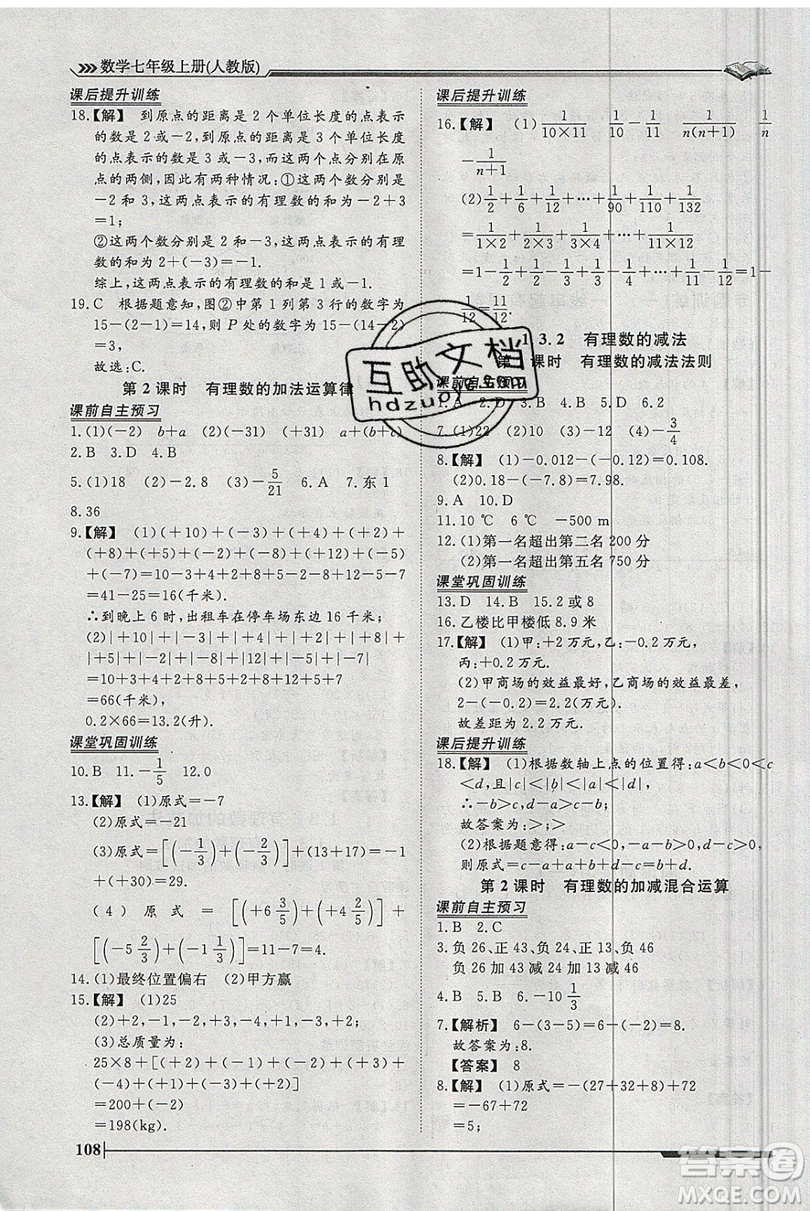 数学七年级上册(人教版)
课后提升训练
18.【解】 到原点的距离是2个单位长度的点表示
的数是2或-2,到原点的距离是3个单位长度
的点表示的数是3或-3,而这两个点分别在原
点的两侧,因此有两种情况:①这两个数分别是
-2和3,两点表示的有理数的和是-2+3
=1;
②这两个数分别是
数的和是
综上,这两点表示的有理数的和是-1或1.
19.C 根据题意知,图②中第1列第3行的数字为
15-(-2-1+4)=14,则P处的数字为15-(14-2)
=3;
故选:C.
第2课时 有理数的加法运算律
课前自主预习
1.(1)(-2) b+a (2)(-31) (+31) a+(b+c)
2.B 3.D 4.B
5.(1)(-18) (2)(-8) (3)(-5/21) 6.A 7.东 1
8.36
9.【解】 (1)(+10)+(-3)+(+4)+(+2)+
(+8)+(+5)+(-2)+(-8)+(+12)+(-5)
+(-7)=16(千米).
∴到晚上6时,出租车在停车场东边16千米;
(2)|+10|+|-3|+|+4|+|+2|+|+8|+
|+5|+|-2|+|-8|+|+12|+|-5|+|-7|
=10+3+4+2+8+5+2+8+12+5+7
=66(千米),
0.2×66=13.2(升).
课堂巩固训练
10.B 11.-1/5 12.0
13.【解】 (1)原式=-7
(2)原式=-21
(3)原式=[(-1/3)+(-2/3)]+(13+17)=(-
1)+(+30)=29.
(4)原式=[(+6 3/5)+(+4 2/5)]+
[(-5 2/3)+(-1 1/3)]=11+(-7)=4.
14.(1)最终位置偏右 (2)甲方赢
15.【解】 (1)25
(2)+2,-3,+2,+1,-2,-1,0,-2.
(3)总质量为:
=200+(-2)
=198(kg).
108
课后提升训练
16.【解】 (1) 1/(10×11) 1/10-1/11 1/(n(n+1)) 1/n
-1/(n+1)
(2)1/2+1/6+1/12+…+1/90+1/110+1/132
=1-1/12=11/12.
3.2 有理数的减法
课时 有理数的减法法则
课前自主预习
D 5.D 6.2
7.(1)22 (2)10 (3)-13 (4)-3/4
8.【解】 (1)-0.012-(-0.12)=0.108.
(2)0.18-(-7.8)=7.98.
9.A 10.D
11.10 ℃ 6 ℃ -500 m
12.(1)第一名超出第二名200分
(2)第一名超出第五名750分
课堂巩固训练
13.D 14.B 15.2或8
16.乙楼比甲楼低8.9米
17.【解】 (1)甲:+2万元,乙:-0.2万元.
(2)甲商场的效益最好,乙商场的效益最差,
2-(-0.2)=2.2(万元).
故差距为2.2万元.
课后提升训练
18.【解】 (1)根据数轴上点的位置得:a<b<0<c
<d,且|c|<|b|<|d|<|a|,
∴-b>c,d-a>c-b;
故答案为:>;>
(2)根据题意得:a-c<0,-a-b>0,d-c>0,
则原式=c-a+a+b+d-c=b+d.
第2课时 有理数的加减混合运算
课前自主预习
1.B 2.C
3.负26、正43、负24、正13、负46
负26加43减24加13减46
4.B 5.B 6.-10 1/3
7.【解析】 6-(3-5)=6-(-2)=8.
故答案为:8.
【答案】 8
8.【解】 (1)原式=-(27+32+8)+72
=-67+72
=5;
互助文档
hdzuoye.com
答案圈
MXQE.COM